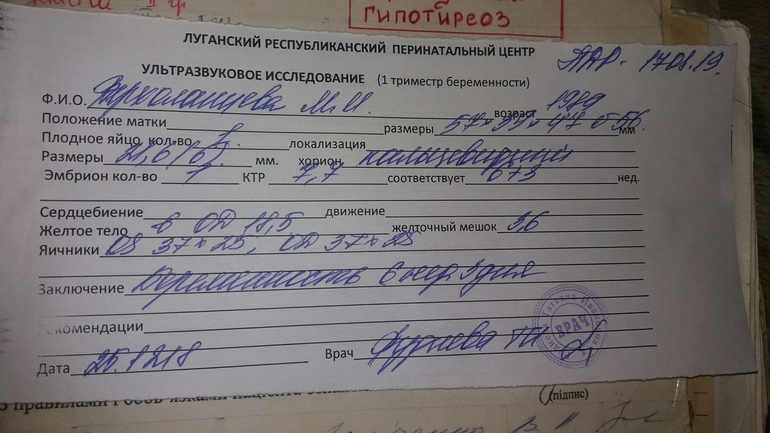 гипотиреоз
ЛУГАНСКИЙ РЕСПУБЛИКАНСКИЙ ПЕРИНАТАЛЬНЫЙ ЦЕНТР
17.08.19.
УЛЬТРАЗВУКОВОЕ ИССЛЕДОВАНИЕ (1 триместр беременности)
Ф.И.О. М.И. возраст 1989
Положение матки размеры 57х39х47 б 56 мм
Плодное яйцо кол-во 1 локализация
Размеры 21,6 (6) мм. хорион кольцевидный
Эмбрион кол-во 1 КТР 7,7 соответствует 6т3 нед.
Сердцебиение движение
Желтое тело в OD 18,5 желточный мешок 3,6
Яичники OS 37х25, OD 37х28
Заключение Беременность 6 нед 3 дня
екомендации
Дата 25.12.18 Врач
ВРАЧ
(підпис)